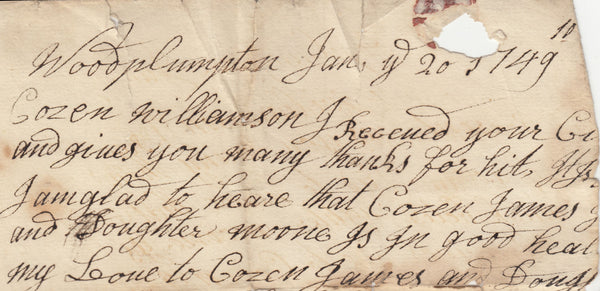 Woodplumpton Jan, yd 20 1749
10
Cozen Williamson J Receued your
and giues you many thanks for hit,
J am glad to heare that Cozen James
and Doughter moone Js Jn good heal
my Loue to Cozen James and Doug